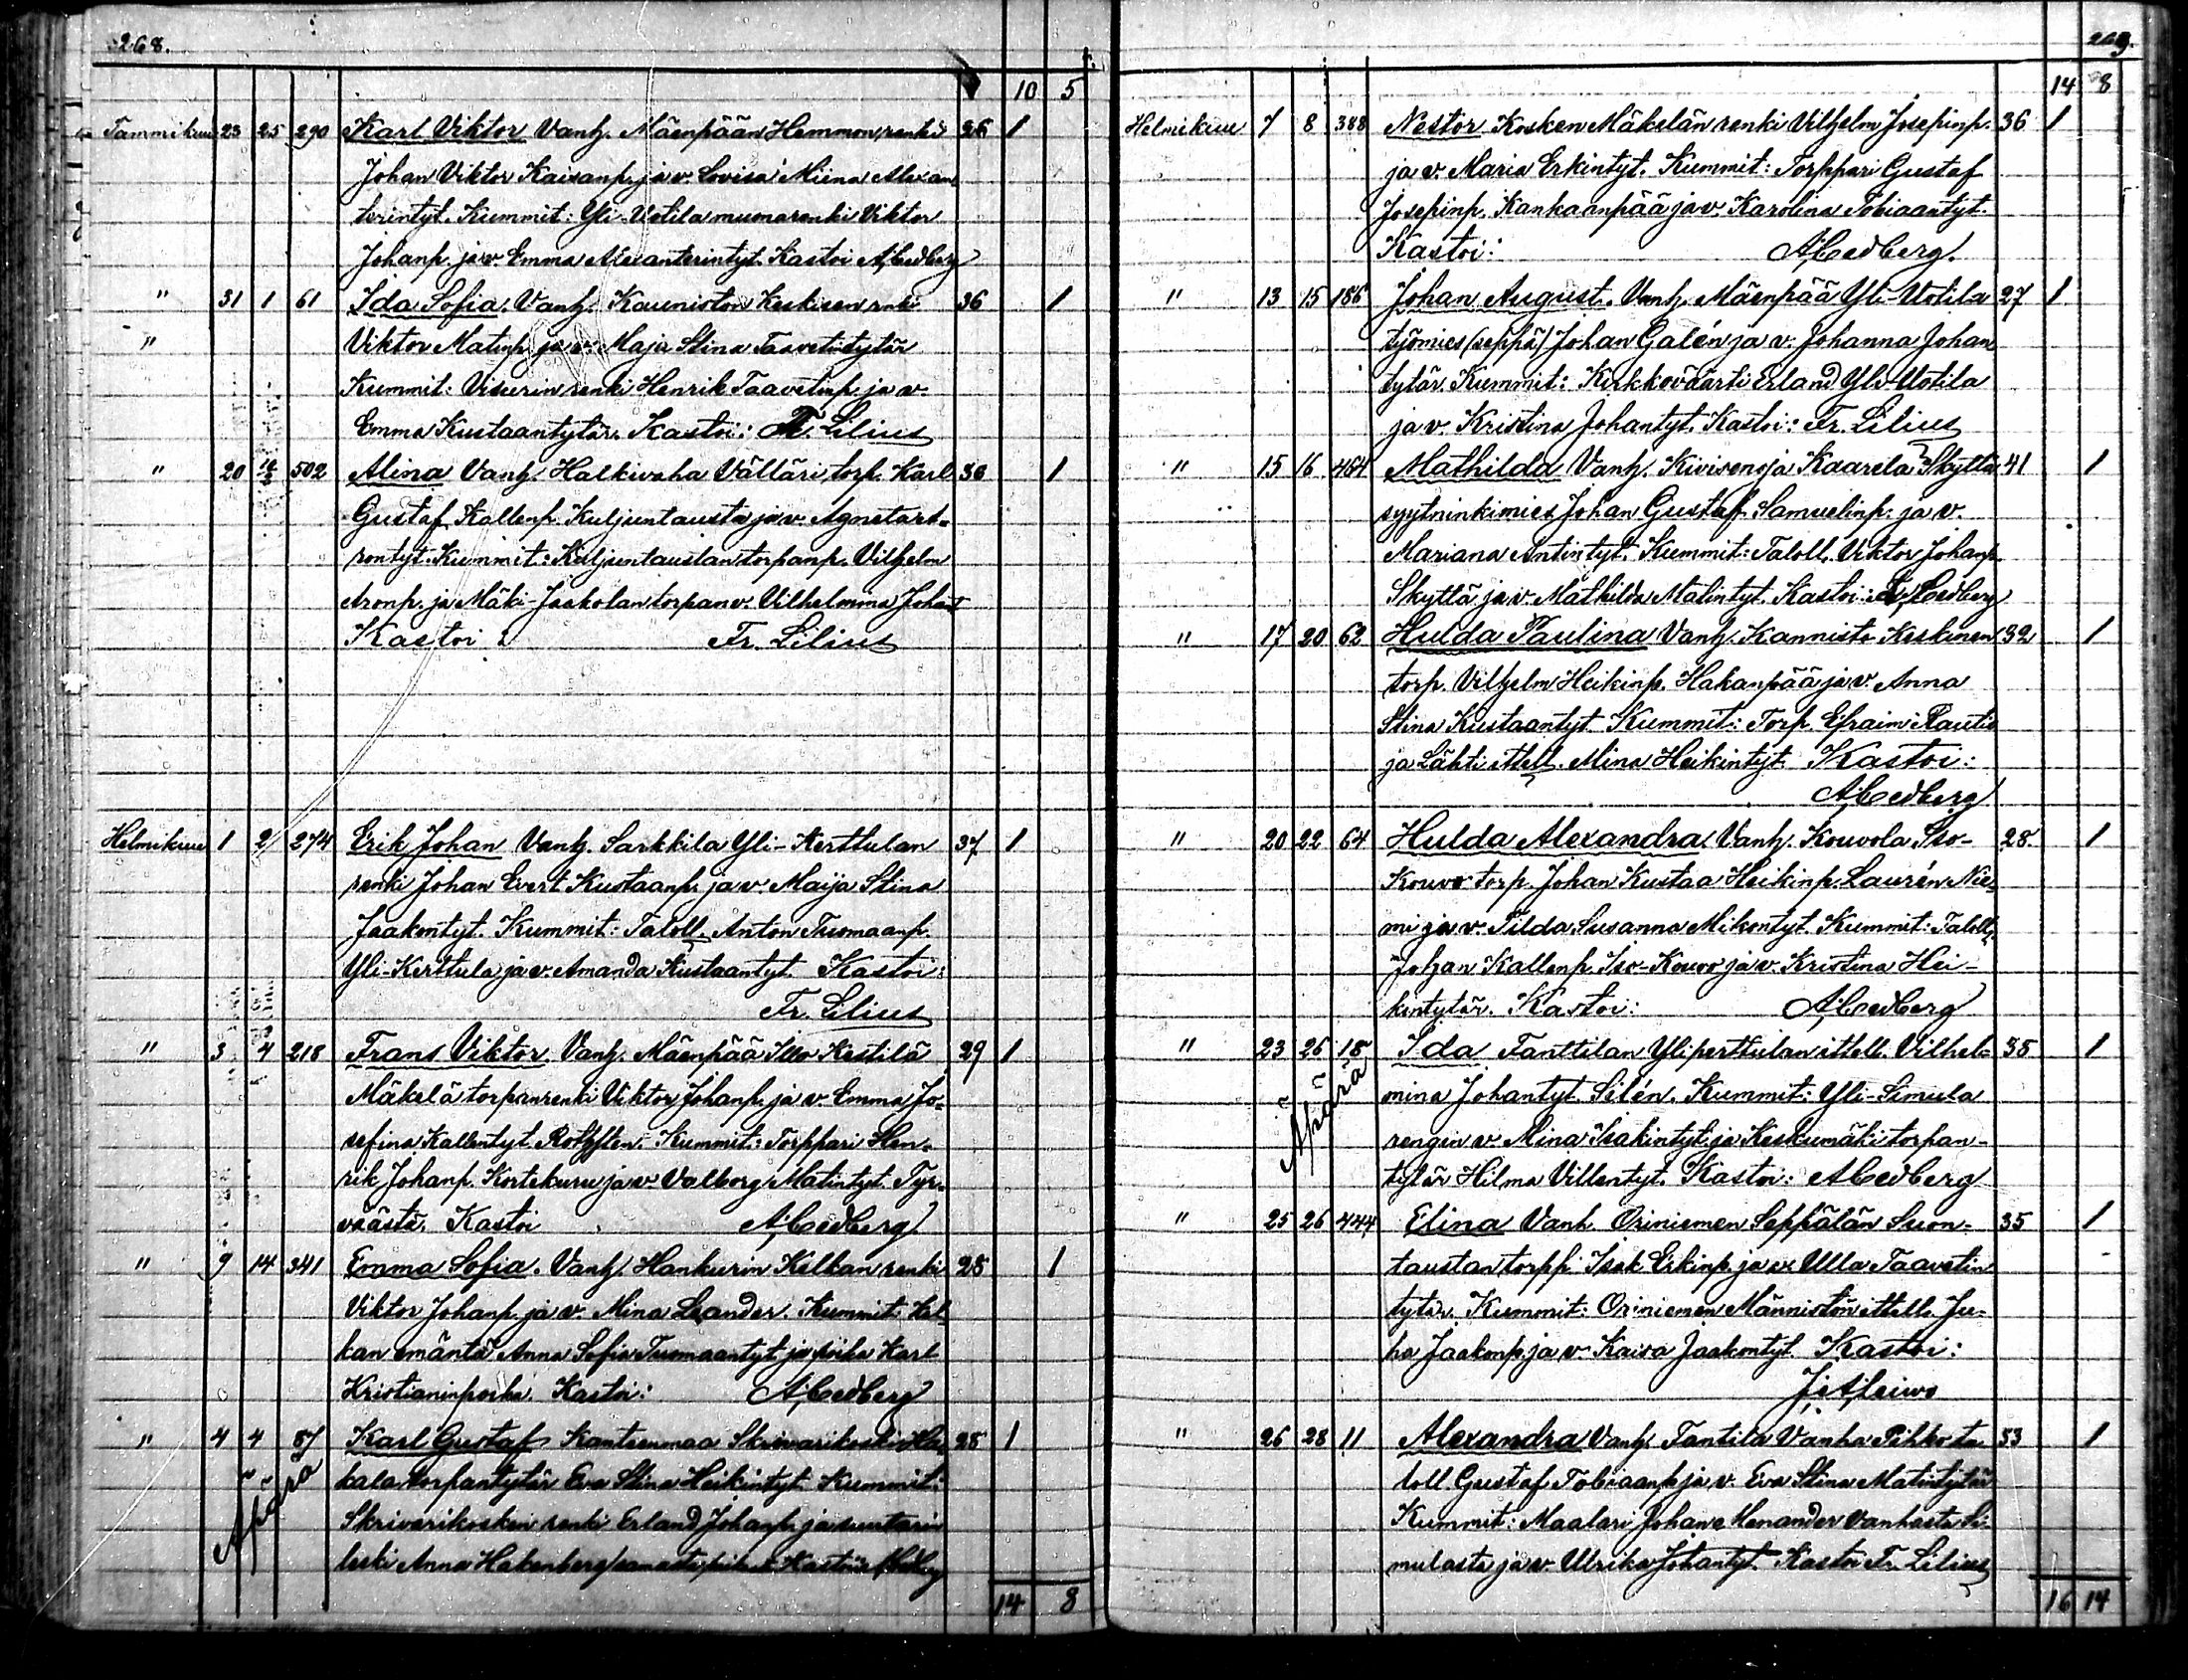 268.
10 5
Tammikuu 23 25 290 Karl Viktor Vanh. Mäenpään Hemmon renki 26 1
Johan Viktor Kaisanp. ja v. Lovisa Miina Alexan
terintyt. Kummit: Yli-Uotila muonarenki Viktor
Johanp. ja v. Emma Alexanterintyt. Kastoi A. Cedberg
" 31 1 61 Ida Sofia. Vanh. Kauniston Keskisen renki 36 1
" Viktor Matinp. ja v. Maja Stina Taavetintytär
Kummit: renki Henrik Taavetinp. ja v.
Emma Kustaantytär. Kastoi: Fr. Lilius
" 20 502 Alina Vanh. Halkivaha Välläri, torp. Karl 36 1
Gustaf Kallenp. Kuljuntausta ja v. Agneta
rentyt. Kummit: Kuljuntaustan torpanp. Vilhelm
Aronp. ja Mäki-Jaakolan torpan v. Vilhelmina Johant
Kastoi: Fr. Lilius
Helmikuu 1 2 274 Erik Johan Vanh. Sarkkila Yli-Kerttulan 37 1
renki Johan Evert Kustaanp. ja v. Maija Stina
Jaakontyt. Kummit: Taloll. Anton Tuomaanp.
Yli-Kerttula ja v. Amanda Kustaantyt. Kastoi:
Fr. Lilius
" 3 4 218 Frans Viktor. Vanh. Mäenpää Illo Kestilä 29 1
Mäkelä torpanrenki Viktor Johanp. ja v. Emma Jo=
sefina Kallentyt. Kummit: Torppari Hen=
rik Johanp. Kortekuru ja v. Valborg Matintyt. Tyr=
väästä. Kastoi A. Cedberg
" 9 14 341 Emma Sofia. Vanh. Hankurin Kelkan renki 28 1
Viktor Johanp. ja v. Mina Leander. Kummit: Kel
kan emäntä Anna Sofia Tuomaantyt. ja poika Karl
Kristianinpoika. Kastoi: A. Cedberg
" 4 4 87 Karl Gustaf Kantrenmaa Skrivarikoski 28 1
Äpärä kala torpantytär Eva Stina Heikintyt. Kummit:
Skrivarikosken renki Erland Johanp. ja suutarin
leski Anna Hakenberg samasta Kastoi: A. Cedberg
14 8
269.
14 8
Helmikuu 7 8 388 Nestor Kosken Mäkelän renki Vilhelm Josepinp. 36 1
ja v. Maria Erkintyt. Kummit: Torppari Gustaf
Josepinp. Kankaanpää ja v. Karolina Tobiaantyt.
Kastoi: A. Cedberg.
" 13 15 186 Johan August. Vanh. Mäenpää Yli-Uotila 27 1
työmies (seppä) Johan Galén ja v. Johanna Johan
tytär. Kummit: Kirkkoväärti Erland Yli-Uotila
ja v. Kristina Johantyt. Kastoi: Fr. Lilius
" 15 16 464 Mathilda Vanh. Kivisenoja Kaarela Skyttä 41 1
syytninkimies Johan Gustaf Samuelinp. ja v.
Mariana Antintyt. Kummit: Taloll. Viktor Johanp.
Skyttä ja v. Mathilda Matintyt. Kastoi: A. Cedberg
" 17 20 62 Hulda Paulina Vanh. Kannisto Keskinen 32 1
torp. Vilhelm Heikinp. Hakanpää ja v. Anna
Stina Kustaantyt. Kummit: Torp. Efraim Rautio
ja Lähti ittell. Mina Heikintyt. Kastoi:
A. Cedberg
" 20 22 64 Hulda Alexandra. Vanh. Kouvola Iso- 28. 1
Kouvo torp. Johan Kustaa Heikinp. Laurén Nie=
mi ja v. Tilda Susanna Mikontyt. Kummit: Taloll.
Johan Kallenp. Iso-Kouvo ja v. Kristina Hei-
kintytär. Kastoi: A. Cedberg
" 23 26 18 Ida Tanttilan Yliperttulan ittell. Vilhel= 38 1
Äpärä mina Johantyt. Silén. Kummit: Yli-Simula
rengin v. Mina Isakintyt. ja Keskumäki torpan-
tytär Hilma Villentyt. Kastoi: A. Cedberg
" 25 26 444 Elina Vanh. Oriniemen Seppälän Suon- 35 1
taustan torpp. Isak Erkinp. ja v. Ulla Taavetin
tytär. Kummit: Oriniemen Männistön ittell. Ju-
ha Jaakonp. ja v. Kaisa Jaakontyt. Kastoi:
J. A. Leiwo
" 26 28 11 Alexandra Vanh. Tantila Vanha Pihko ta- 33 1
loll. Gustaf Tobiaanp. ja v. Eva Stina Matintytär
Kummit: Maalari Johan Menander Vanhasta Si-
mulasta ja v. Ulrika Johantyt. Kastoi Fr. Lilius
16 14